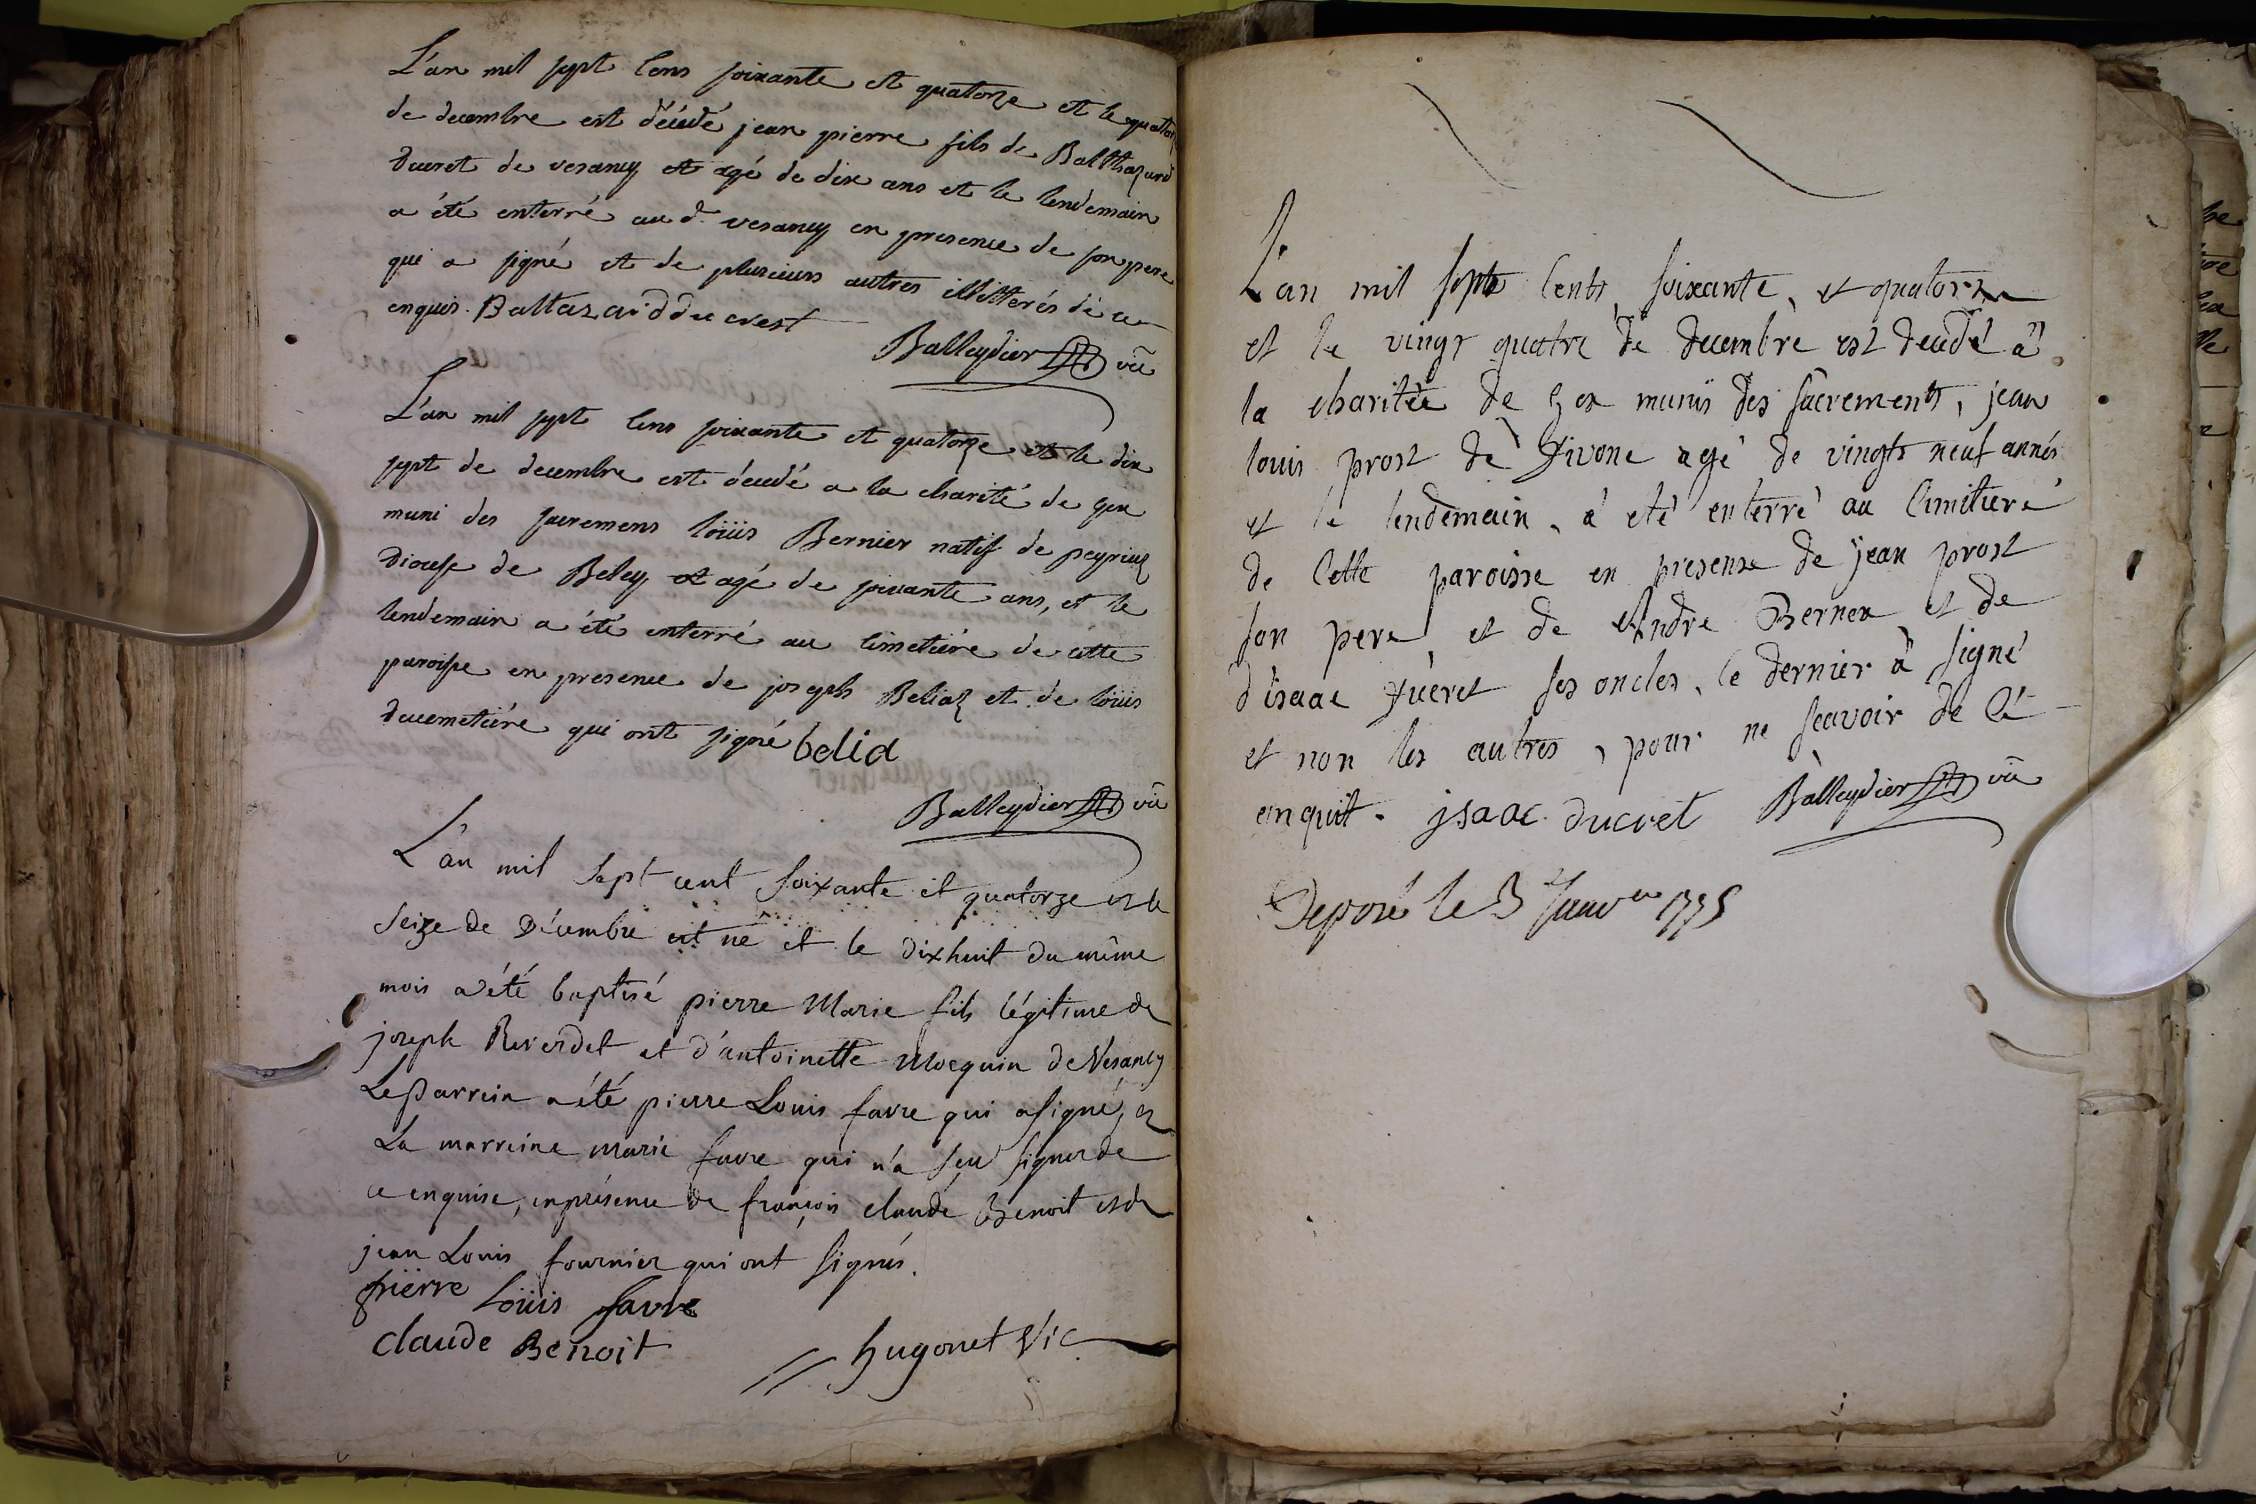 L'an mil sept cens soixante et quatorze et le quator
de decembre est décédé jean pierre fils de Balthazard
Ducret de vesancy et agé de dix ans et le lendemain
a été enterré au d. vesancy en presence de son pere
qui a signé et de plusieurs autres illitterés de ce
enquis. Baltazard ducrest
Balleydier vic
L'an mil sept cens soixante et quatorze et le dix
sept de decembre est décedé a la charité de gex
muni des sacremens loüis Bernier natif de peyrieuz
Diocese de Beley et agé de soixante ans, et le
lendemain a été enterré au cimetiére de cette
paroisse en presence de joseph Beliaz et de loüis
ducemetiére qui ont signé belia
Balleydier vic
L'an mil Sept cent soixante et quatorze et le
seize de Décembre est né et le dixhuit du même
mois a été baptisé pierre Marie fils légitime de
joseph Reverdet et d'antoinette Mocquin de Vesancy
Le parrein a été pierre Louis favre qui a signé, et
La marreine marie favre qui n'a sçu signer de
ce enquise, en présence de françois claude Benoit et de
jean Louis fournier qui ont signés.
pierre loüis favre
claude Benoit
hugonet Vic
L'an mil sept cents soixante, et quatorze
et le vingt quatre de decembre est decedé â
la charitée de gex munis des sacrements, jean
louis prost de Divone agé de vingts neuf années
et le lendemain, a eté enterré au cimitiere
de cette paroisse en presense de jean prost
son pere et de André Bernex et de
d'isaac Dueret ses oncles, le dernier â signé
et non les autres, pour ne scavoir de cé
enquit. jsaac ducret Balleydier vic
Deposé le 3 Janver 1775